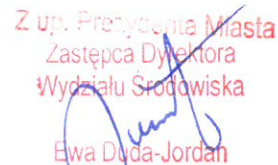 Z up. Prezydenta Miasta
Zastępca Dyrektora
Wydziału Środowiska
Ewa Duda-Jordan